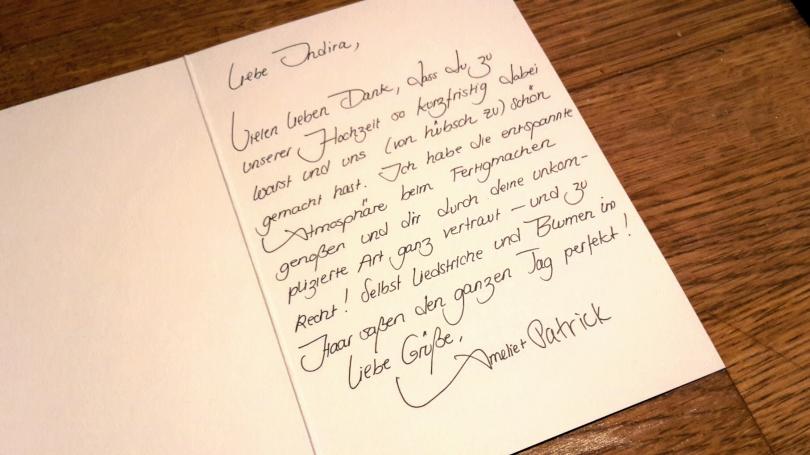 Liebe Indira,
Vielen lieben Dank, dass du zu
unserer Hochzeit so kurzfristig dabei
warst und uns (von hübsch zu) schön
gemacht hast. Ich habe die entspannte
Atmosphäre beim Fertigmachen
genoßen und dir durch deine unkom-
plizierte Art ganz vertraut – und zu
Recht! Selbst Liedstriche und Blumen im
Haar saßen den ganzen Tag perfekt!
Liebe Grüße,
Amelie + Patrick